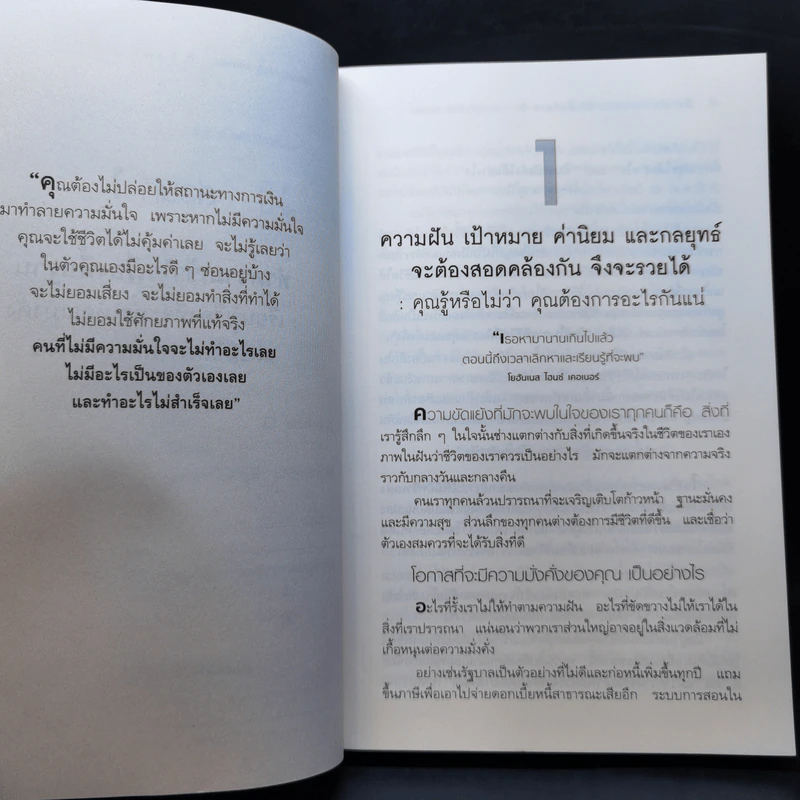 “คุณต้องไม่ปล่อยให้สถานะทางการเงิน
มาทำลายความมั่นใจ เพราะหากไม่มีความมั่นใจ
คุณจะใช้ชีวิตได้ไม่คุ้มค่าเลย จะไม่รู้เลยว่า
ในตัวคุณเองมีอะไรดี ๆ ซ่อนอยู่บ้าง
จะไม่ยอมเสี่ยง จะไม่ยอมทำสิ่งที่ทำได้
ไม่ยอมใช้ศักยภาพที่แท้จริง
คนที่ไม่มีความมั่นใจจะไม่ทำอะไรเลย
ไม่มีอะไรเป็นของตัวเองเลย
และทำอะไรไม่สำเร็จเลย”
1
ความฝัน เป้าหมาย ค่านิยม และกลยุทธ์
จะต้องสอดคล้องกัน จึงจะรวยได้
: คุณรู้หรือไม่ว่า คุณต้องการอะไรกันแน่
“เธอหามานานเกินไปแล้ว
ตอนนี้ถึงเวลาเลิกหาและเรียนรู้ที่จะพบ”
โยฮันเนส ไฮนซ์ เคอเนอร์
ความขัดแย้งที่มักจะพบในใจของเราทุกคนก็คือ สิ่งที่
เรารู้สึกลึก ๆ ในใจนั้นช่างแตกต่างกับสิ่งที่เกิดขึ้นจริงในชีวิตของเราเอง
ภาพในฝันว่าชีวิตของเราควรเป็นอย่างไร มักจะแตกต่างจากความจริง
ราวกับกลางวันและกลางคืน
คนเราทุกคนล้วนปรารถนาที่จะเจริญเติบโตก้าวหน้า ฐานะมั่นคง
และมีความสุข ส่วนลึกของทุกคนต่างต้องการมีชีวิตที่ดีขึ้น และเชื่อว่า
ตัวเองสมควรที่จะได้รับสิ่งที่ดี
โอกาสที่จะมีความมั่งคั่งของคุณ เป็นอย่างไร
อะไรที่รั้งเราไม่ให้ทำตามความฝัน อะไรที่ขัดขวางไม่ให้เราได้ใน
สิ่งที่เราปรารถนา แน่นอนว่าพวกเราส่วนใหญ่อาจอยู่ในสิ่งแวดล้อมที่ไม่
เกื้อหนุนต่อความมั่งคั่ง
อย่างเช่นรัฐบาลเป็นตัวอย่างที่ไม่ดีและก่อหนี้เพิ่มขึ้นทุกปี แถม
ขึ้นภาษีเพื่อเอาไปจ่ายดอกเบี้ยหนี้สาธารณะเสียอีก ระบบการสอนใน